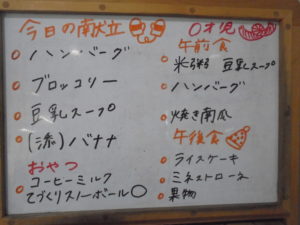 今日の献立
ハンバーグ
ブロッコリー
豆乳スープ
(添)バナナ
おやつ
コーヒーミルク
てづくりスノーボール
0才児
午前食
米粥 豆乳スープ
ハンバーグ
焼き南瓜
午後食
ライスケーキ
ミネストローネ
果物